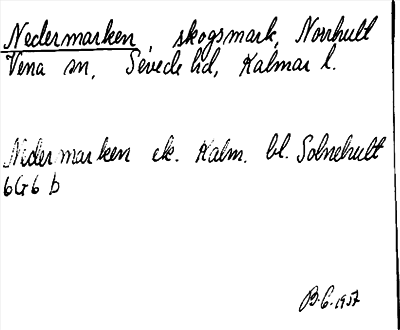 Nedermarken, skogsmark, Norrhult
Vena sn, Sevede hd, Kalmar l.
Nedermarken ek. Kalm. bl. Solnehult
6G6 b
B.C. 1957